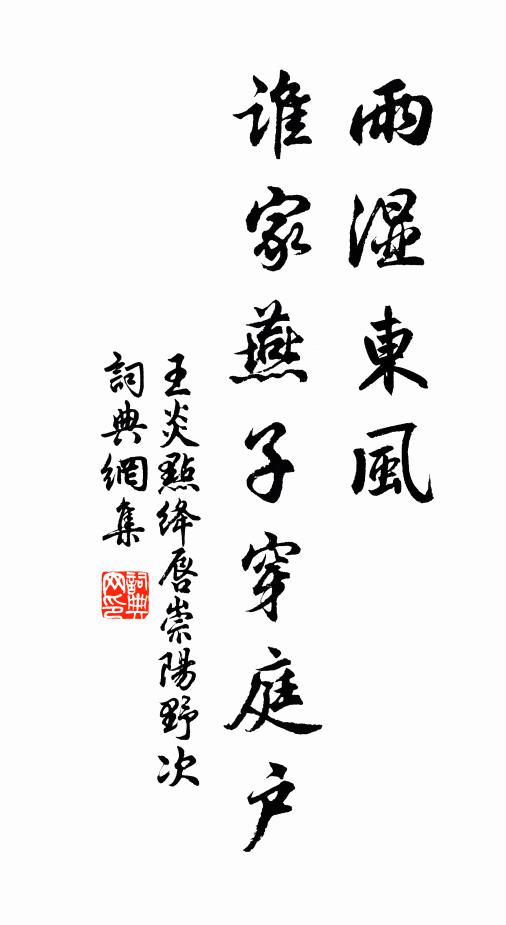 雨湿東風
誰家燕子穿庭戶
王炎點絳唇崇陽野次
詞典網集
詞典網印